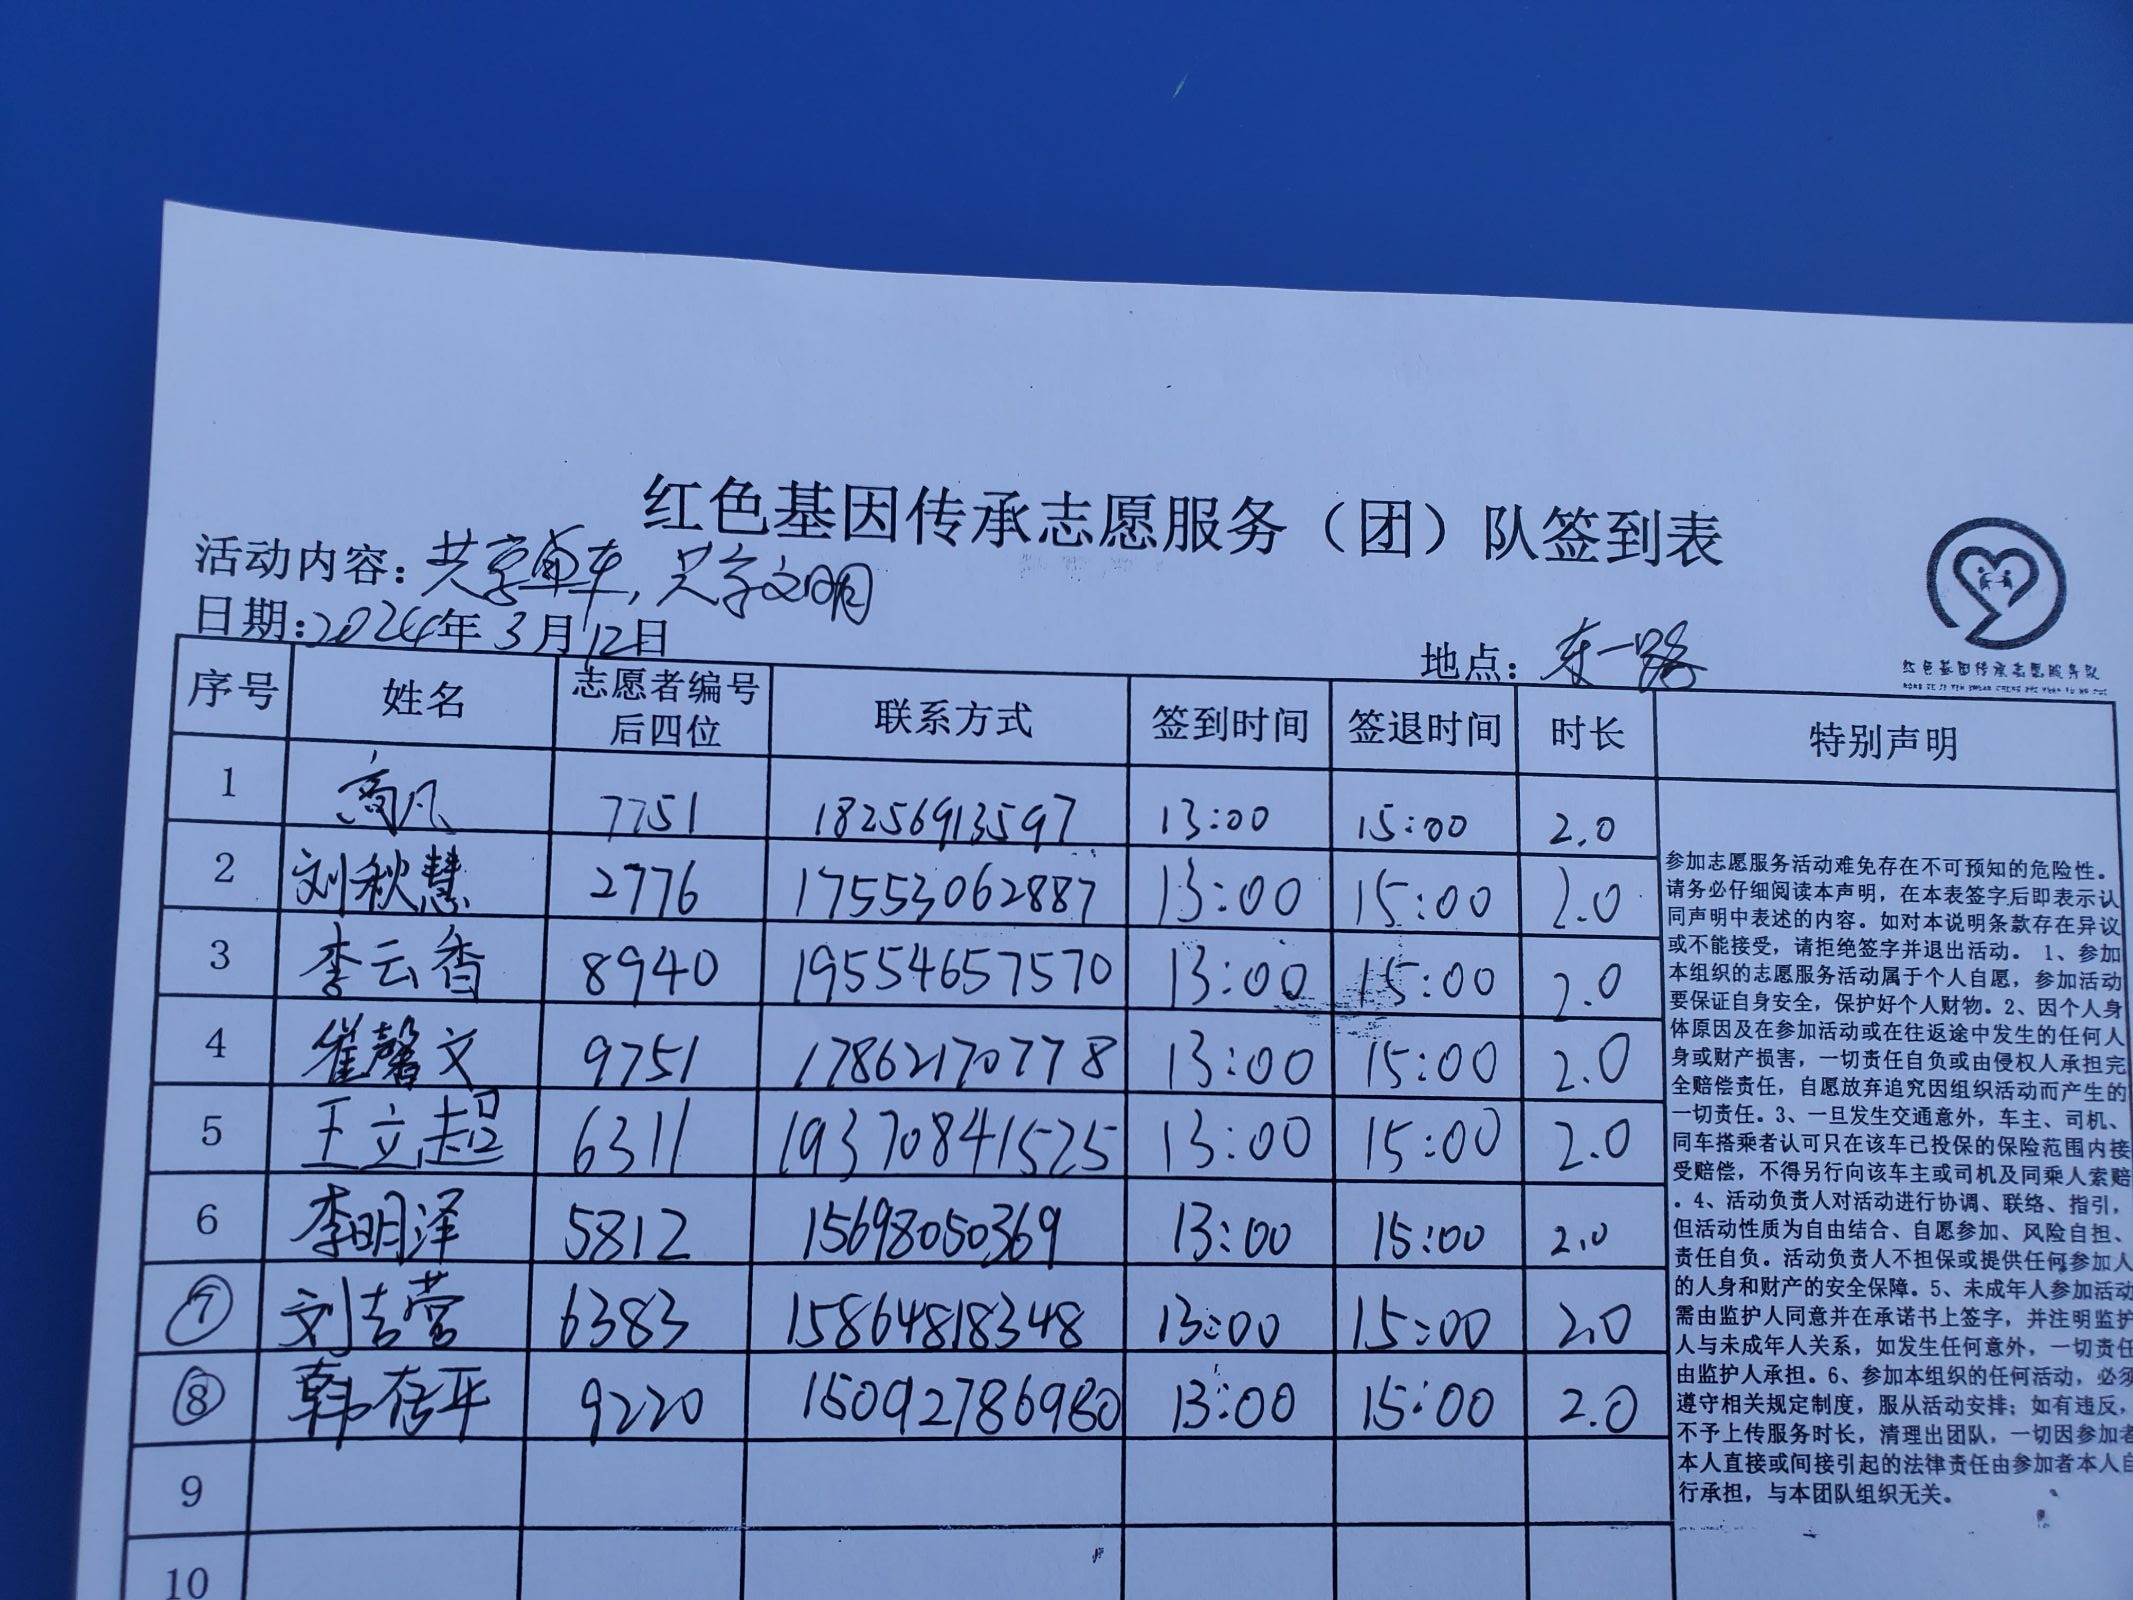 红色基因传承志愿服务（团）队签到表
活动内容：共享单车，共享文明
日期：2024年3月12日
地点：东一路
红色基因传承志愿服务队
序号 姓名 志愿者编号后四位 联系方式 签到时间 签退时间 时长 特别声明
1 高凡 7751 18256913597 13:00 15:00 2.0
2 刘秋慧 2776 17553062887 13:00 15:00 2.0
3 李云香 8940 19554657570 13:00 15:00 2.0
4 崔馨文 9751 17862170778 13:00 15:00 2.0
5 王立超 6311 19370841525 13:00 15:00 2.0
6 李明泽 5812 15698050369 13:00 15:00 2.0
7 刘吉营 6383 15864818348 13:00 15:00 2.0
8 韩存平 9220 15092786980 13:00 15:00 2.0
9
10
参加志愿服务活动难免存在不可预知的危险性。
请务必仔细阅读本声明，在本表签字后即表示认
同声明中表述的内容。如对本说明条款存在异议
或不能接受，请拒绝签字并退出活动。 1、参加
本组织的志愿服务活动属于个人自愿，参加活动
要保证自身安全，保护好个人财物。2、因个人身
体原因及在参加活动或在往返途中发生的任何人
身或财产损害，一切责任自负或由侵权人承担完
全赔偿责任，自愿放弃追究因组织活动而产生的
一切责任。3、一旦发生交通意外，车主、司机、
同车搭乘者认可只在该车已投保的保险范围内接
受赔偿，不得另行向该车主或司机及同乘人索赔
。4、活动负责人对活动进行协调、联络、指引，
但活动性质为自由结合、自愿参加、风险自担、
责任自负。活动负责人不担保或提供任何参加人
的人身和财产的安全保障。5、未成年人参加活动
需由监护人同意并在承诺书上签字，并注明监护
人与未成年人关系，如发生任何意外，一切责任
由监护人承担。6、参加本组织的任何活动，必须
遵守相关规定制度，服从活动安排；如有违反，
不予上传服务时长，清理出团队，一切因参加者
本人直接或间接引起的法律责任由参加者本人自
行承担，与本团队组织无关。